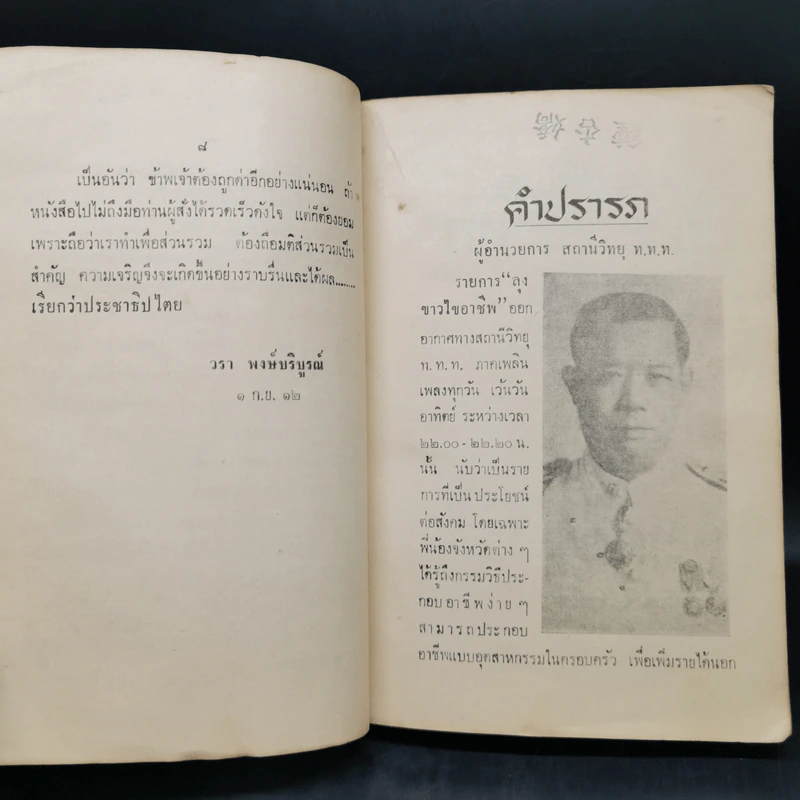 ๘
เป็นอันว่า ข้าพเจ้าต้องถูกด่าอีกอย่างแน่นอน ถ้า
หนังสือไปไม่ถึงมือท่านผู้สั่งได้รวดเร็วดังใจ แต่ก็ต้องยอม
เพราะถือว่าเราทำเพื่อส่วนรวม ต้องถือมติส่วนรวมเป็น
สำคัญ ความเจริญจึงจะเกิดขึ้นอย่างราบรื่นและได้ผล.......
เรียกว่าประชาธิปไตย
วรา พงษ์บริบูรณ์
๑ ก.ย. ๑๒
คำปรารภ
ผู้อำนวยการ สถานีวิทยุ ท.ท.ท.
รายการ “ลุง
ขาวไขอาชีพ” ออก
อากาศทางสถานีวิทยุ
ท.ท.ท. ภาคเพลิน
เพลงทุกวัน เว้นวัน
อาทิตย์ ระหว่างเวลา
๒๒.๐๐ - ๒๒.๒๐ น.
นั้น นับว่าเป็นราย
การที่เป็นประโยชน์
ต่อสังคม โดยเฉพาะ
พี่น้องจังหวัดต่าง ๆ
ได้รู้ถึงกรรมวิธีประ-
กอบอาชีพง่าย ๆ
สามารถประกอบ
อาชีพแบบอุตสาหกรรมในครอบครัว เพื่อเพิ่มรายได้นอก